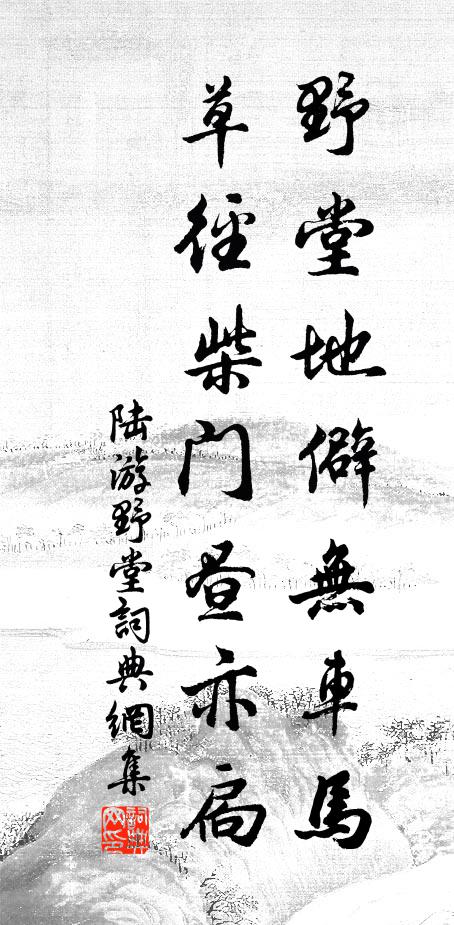 野堂地僻無車馬
草徑柴門昼亦扃
陆游野堂詞典網集
詞典网印